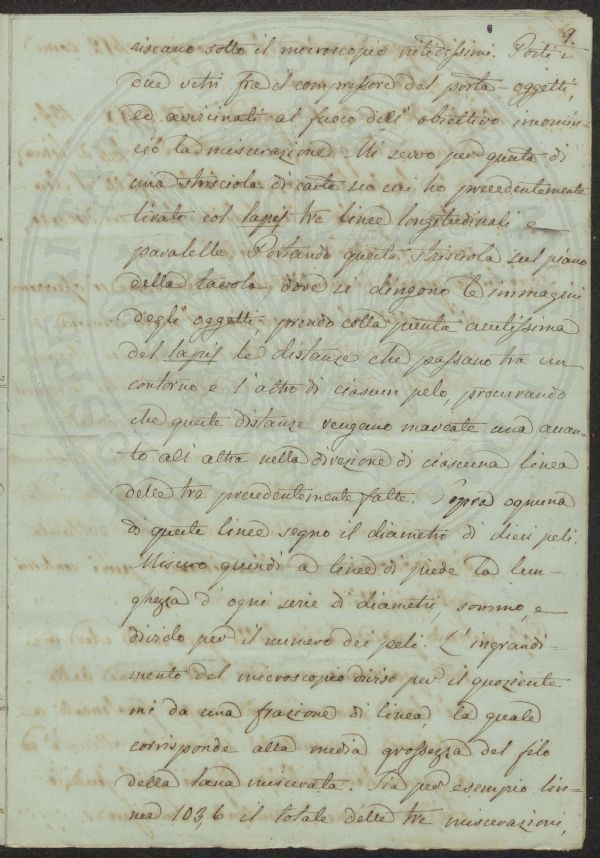 9.
riscano sotto il microscopio nitidissimi. Posti i
due vetri fra il compressore del porta-oggetti,
ed avvicinati al fuoco dell' obiettivo incomin-
ciò la misurazione. Mi servo per questa di
una strisciola di carta su cui ho precedentemente
tirato col lapis tre linee longitudinali e
paralelle. Portando questa strisciola sul piano
della tavola, dove si dingono le immagini
degli oggetti, prendo colla punta acutissima
del lapis le distanze che passano tra un
contorno e l'altro di ciascun pelo, procurando
che queste distanze vengano marcate una accan-
to all' altra nella direzione di ciascuna linea
delle tre precedentemente fatte. Sopra ognuna
di queste linee segno il diametro di dieci peli.
Misuro quindi a linee di piede la lun-
ghezza d' ogni serie di diametri, sommo, e
divido per il numero dei peli. L'ingrandi-
mento del microscopio diviso per il quoziente
mi da una frazione di linea, la quale
corrisponde alla media grossezza del filo
della lana misurata. Sia per esempio lin-
nee 103,6 il totale delle tre misurazioni,